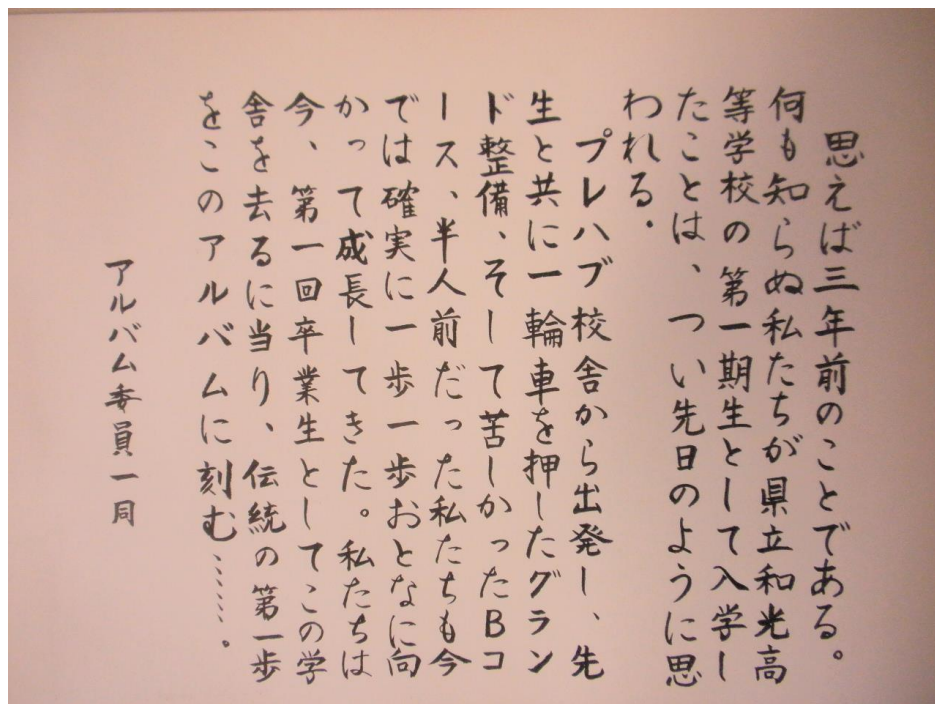 思えば三年前のことである。
何も知らぬ私たちが県立和光高
等学校の第一期生として入学し
たことは、つい先日のように思
われる.
プレハブ校舎から出発し、先
生と共に一輪車を押したグラン
ド整備、そして苦しかったBコ
ース、半人前だった私たちも今
では確実に一歩一歩おとなに向
かって成長してきた。私たちは
今、第一回卒業生としてこの学
舎を去るに当り、伝統の第一歩
をこのアルバムに刻む…….
アルバム委員一同